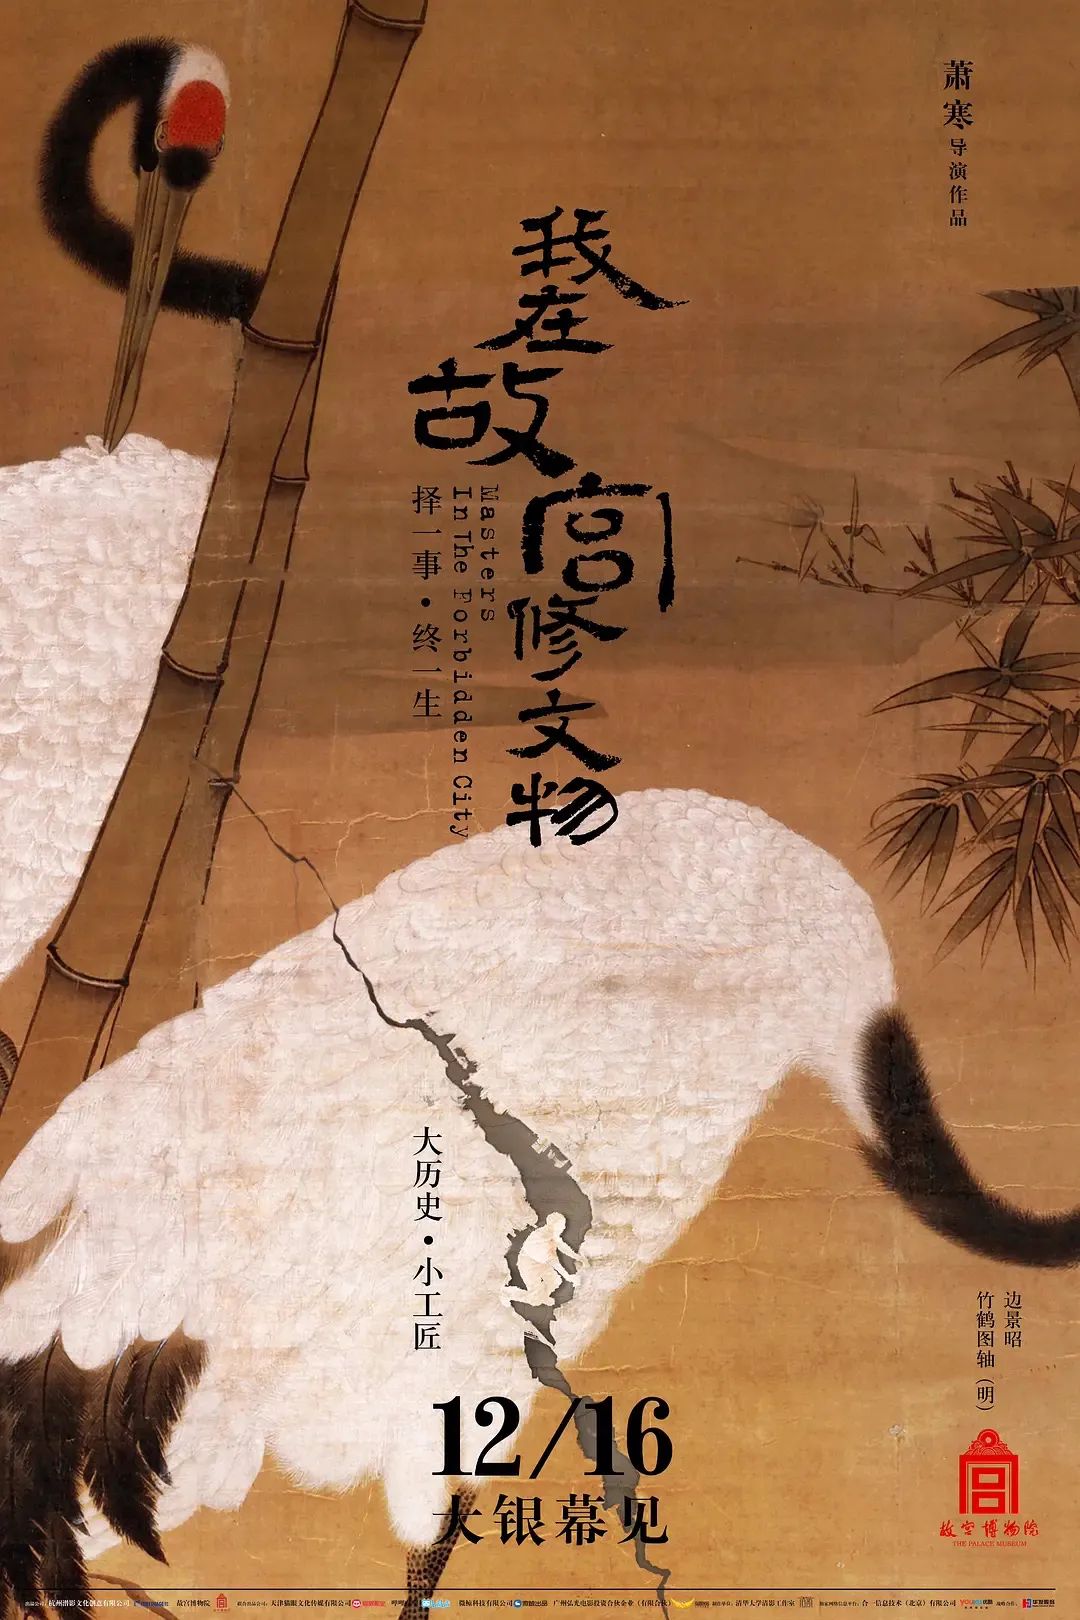 萧寒导演作品
我在故宫修文物
Masters
In The Forbidden City
择一事·终一生
大历史·小工匠
边景昭
竹鹤图轴（明）
12/16
大银幕见
故宫博物院
THE PALACE MUSEUM
出品公司：杭州潜影文化创意有限公司
故宫博物院
联合出品公司：天津猫眼文化传媒有限公司
微鲸科技有限公司
广州弘光电影投资合伙企业（有限合伙）
制作单位：清华大学清影工作室
独家网络信息平台：合一信息技术（北京）有限公司
战略合作：